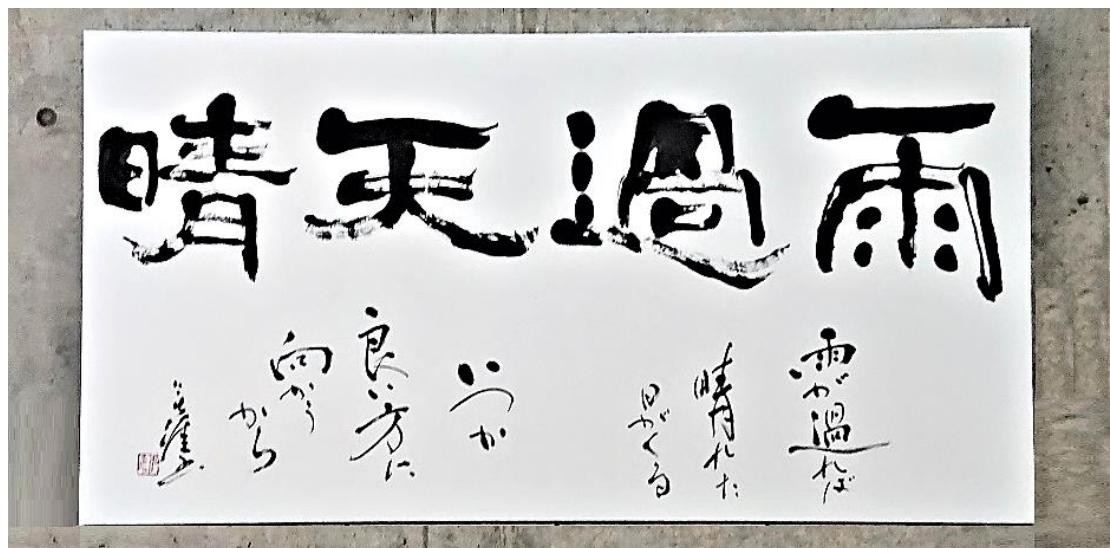 雨過天晴
雨が過れば
晴れた
日がくる
いつか
良い方に
向かう
から